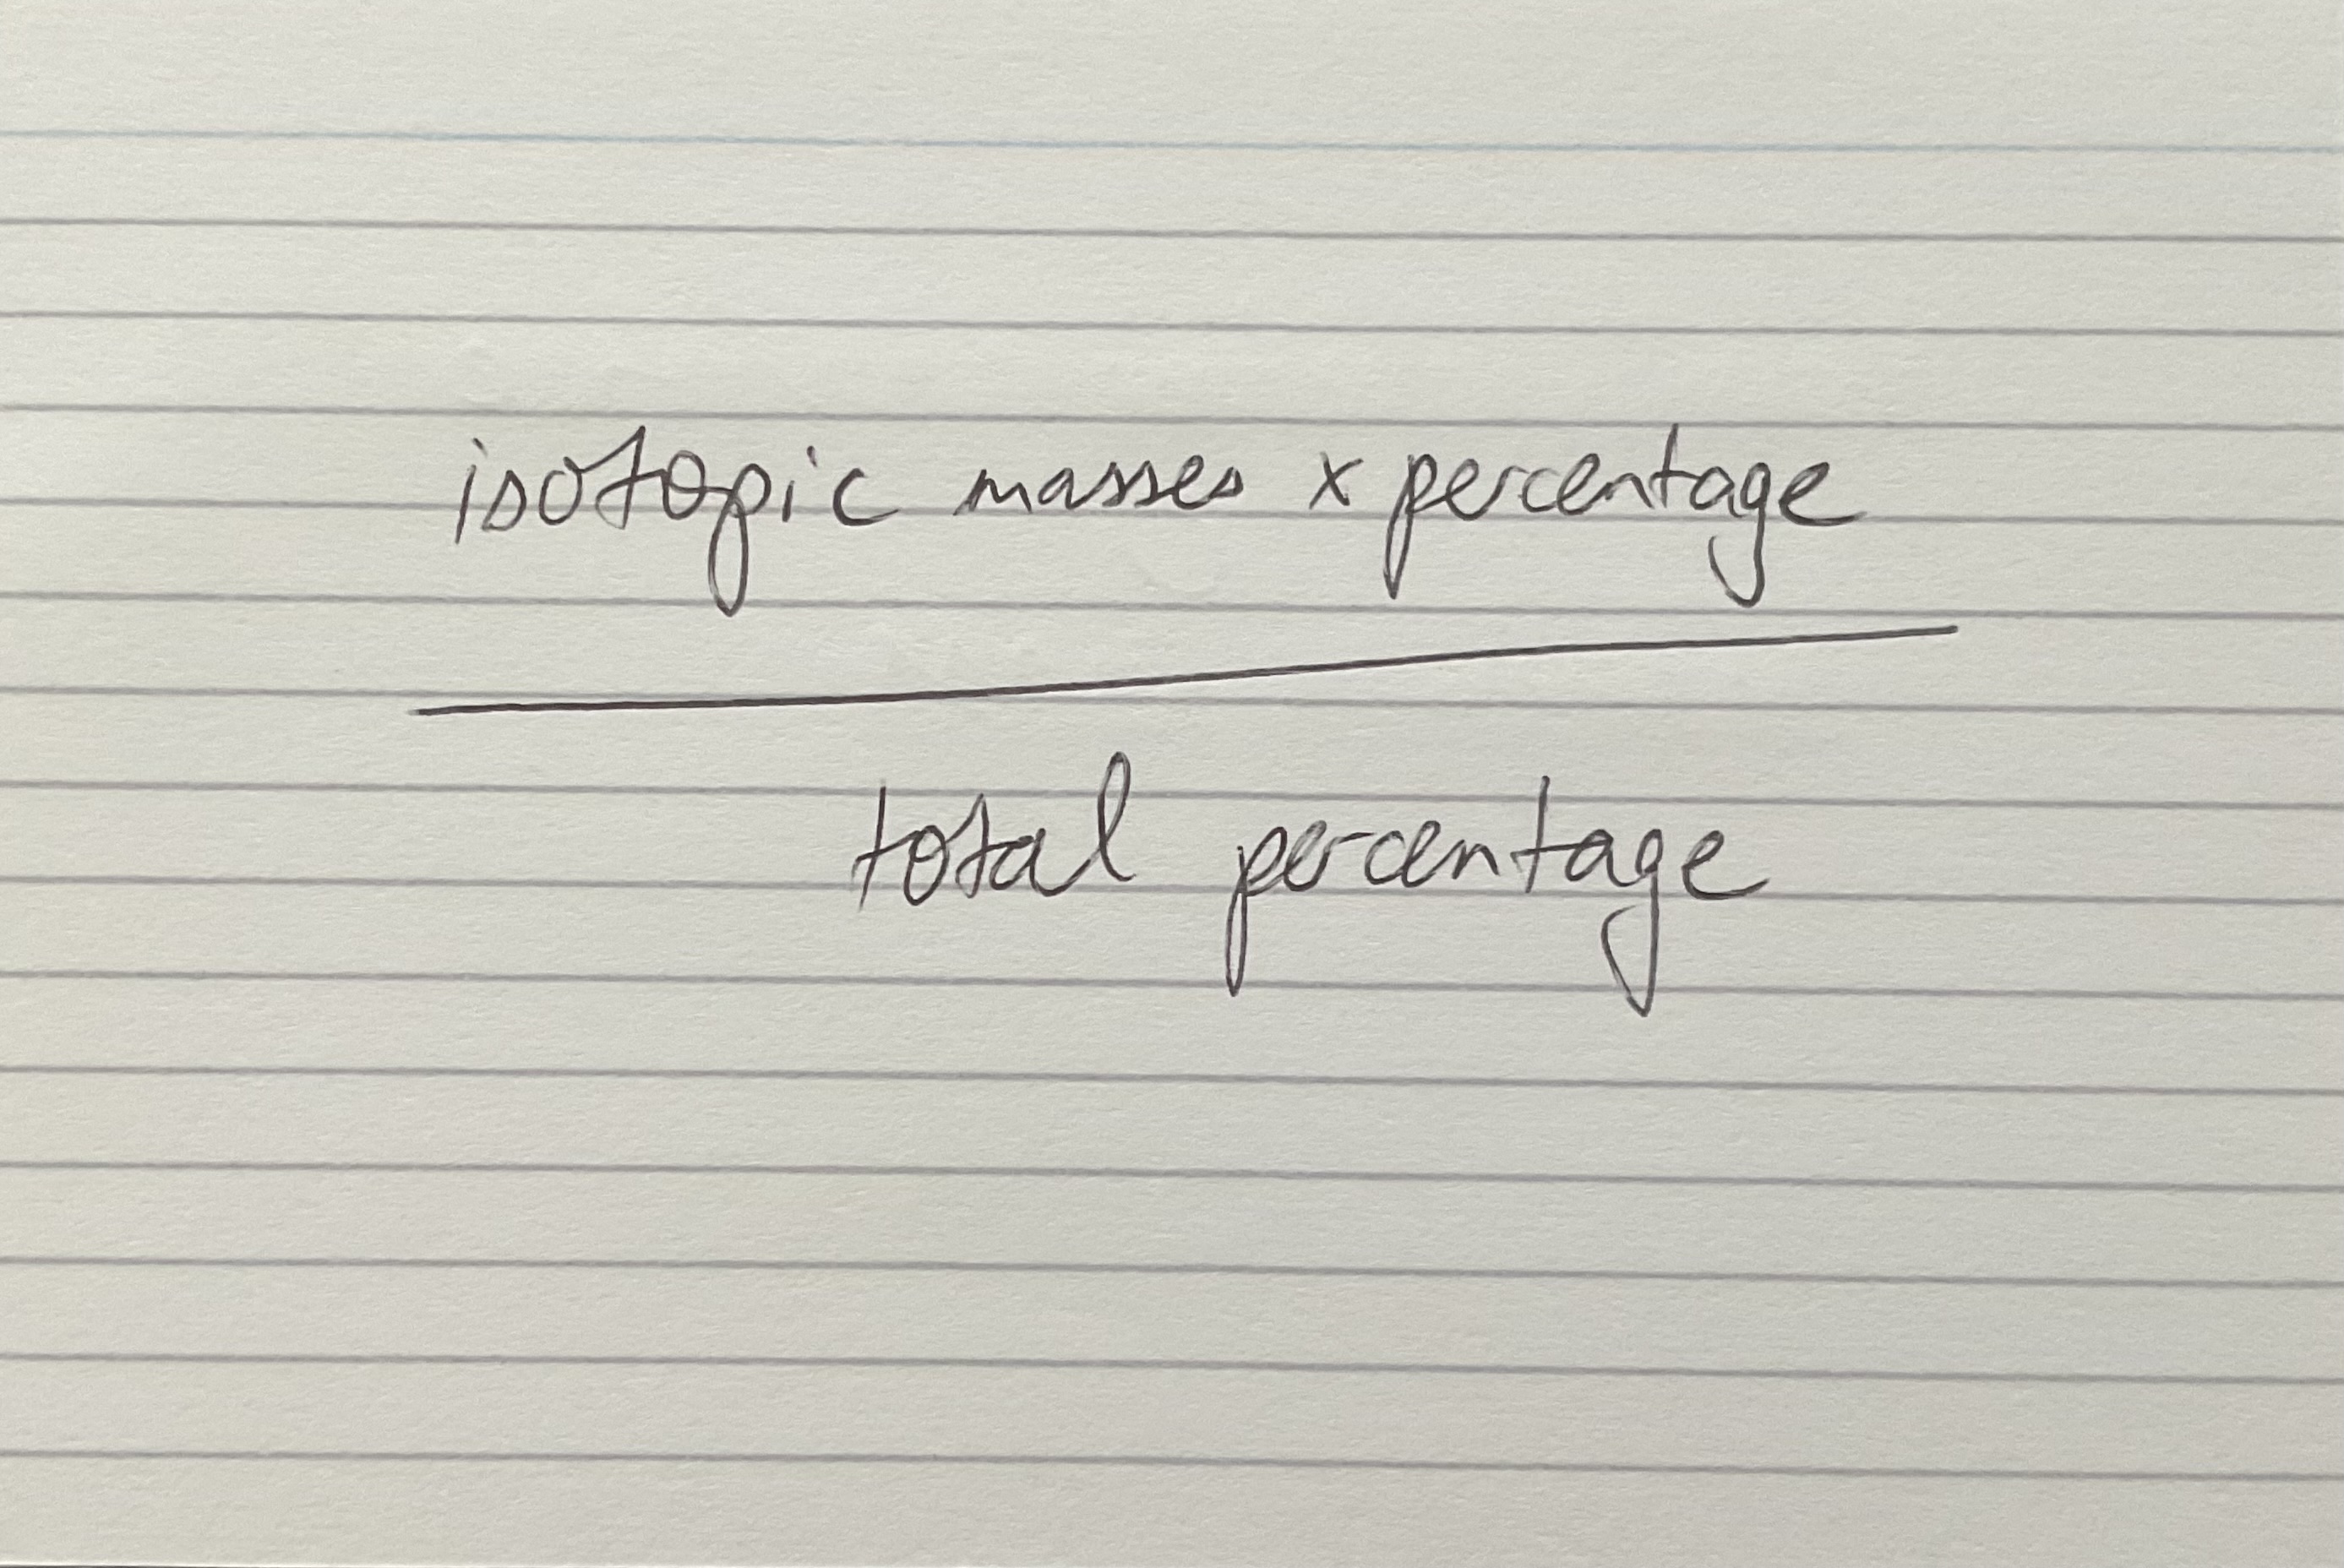 isotopic masses x percentage
total percentage